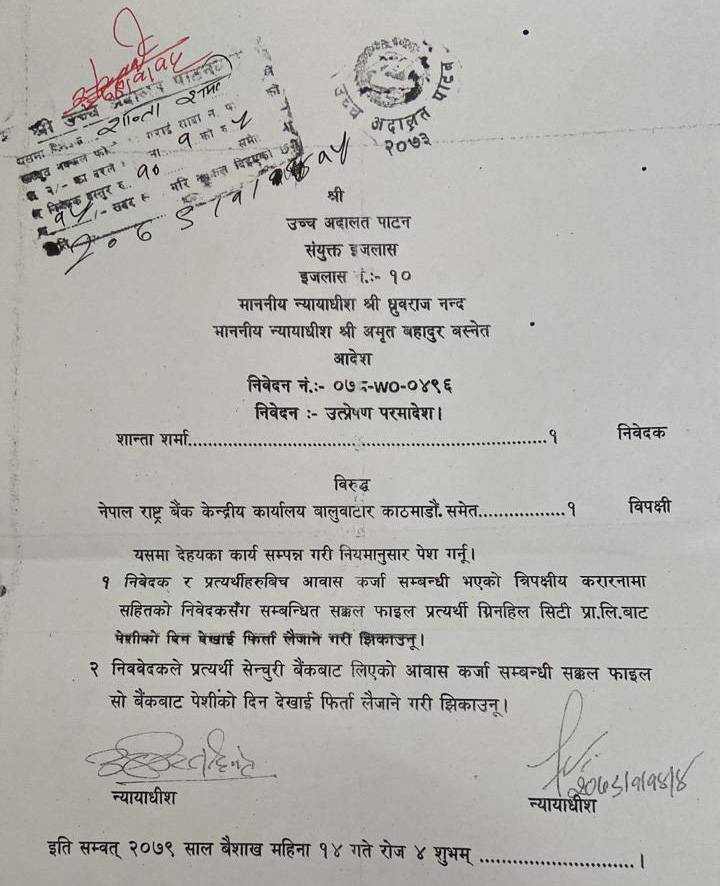 श्री उच्च अदालत पाटन
शान्ता शर्मा
उच्च अदालत पाटन
२०७३
श्री
उच्च अदालत पाटन
संयुक्त इजलास
इजलास नं.:- १०
माननीय न्यायाधीश श्री ध्रुवराज नन्द
माननीय न्यायाधीश श्री अमृत बहादुर बस्नेत
आदेश
निवेदन नं.:- ०७८-WO-०४९६
निवेदन :- उत्प्रेषण परमादेश।
शान्ता शर्मा.................................................................१ निवेदक
विरुद्ध
नेपाल राष्ट्र बैंक केन्द्रीय कार्यालय बालुवाटार काठमाडौं. समेत.................१ विपक्षी
यसमा देहयका कार्य सम्पन्न गरी नियमानुसार पेश गर्नू।
१ निवेदक र प्रत्यर्थीहरुबिच आवास कर्जा सम्बन्धी भएको त्रिपक्षीय करारनामा
सहितको निवेदकसँग सम्बन्धित सक्कल फाइल प्रत्यर्थी ग्रिनहिल सिटी प्रा.लि.बाट
पेशीको दिन देखाई फिर्ता लैजाने गरी झिकाउनू।
२ निववेदकले प्रत्यर्थी सेन्चुरी बैंकबाट लिएको आवास कर्जा सम्बन्धी सक्कल फाइल
सो बैंकबाट पेशीको दिन देखाई फिर्ता लैजाने गरी झिकाउनू।
न्यायाधीश
न्यायाधीश
इति सम्वत् २०७९ साल बैशाख महिना १४ गते रोज ४ शुभम् ............................।